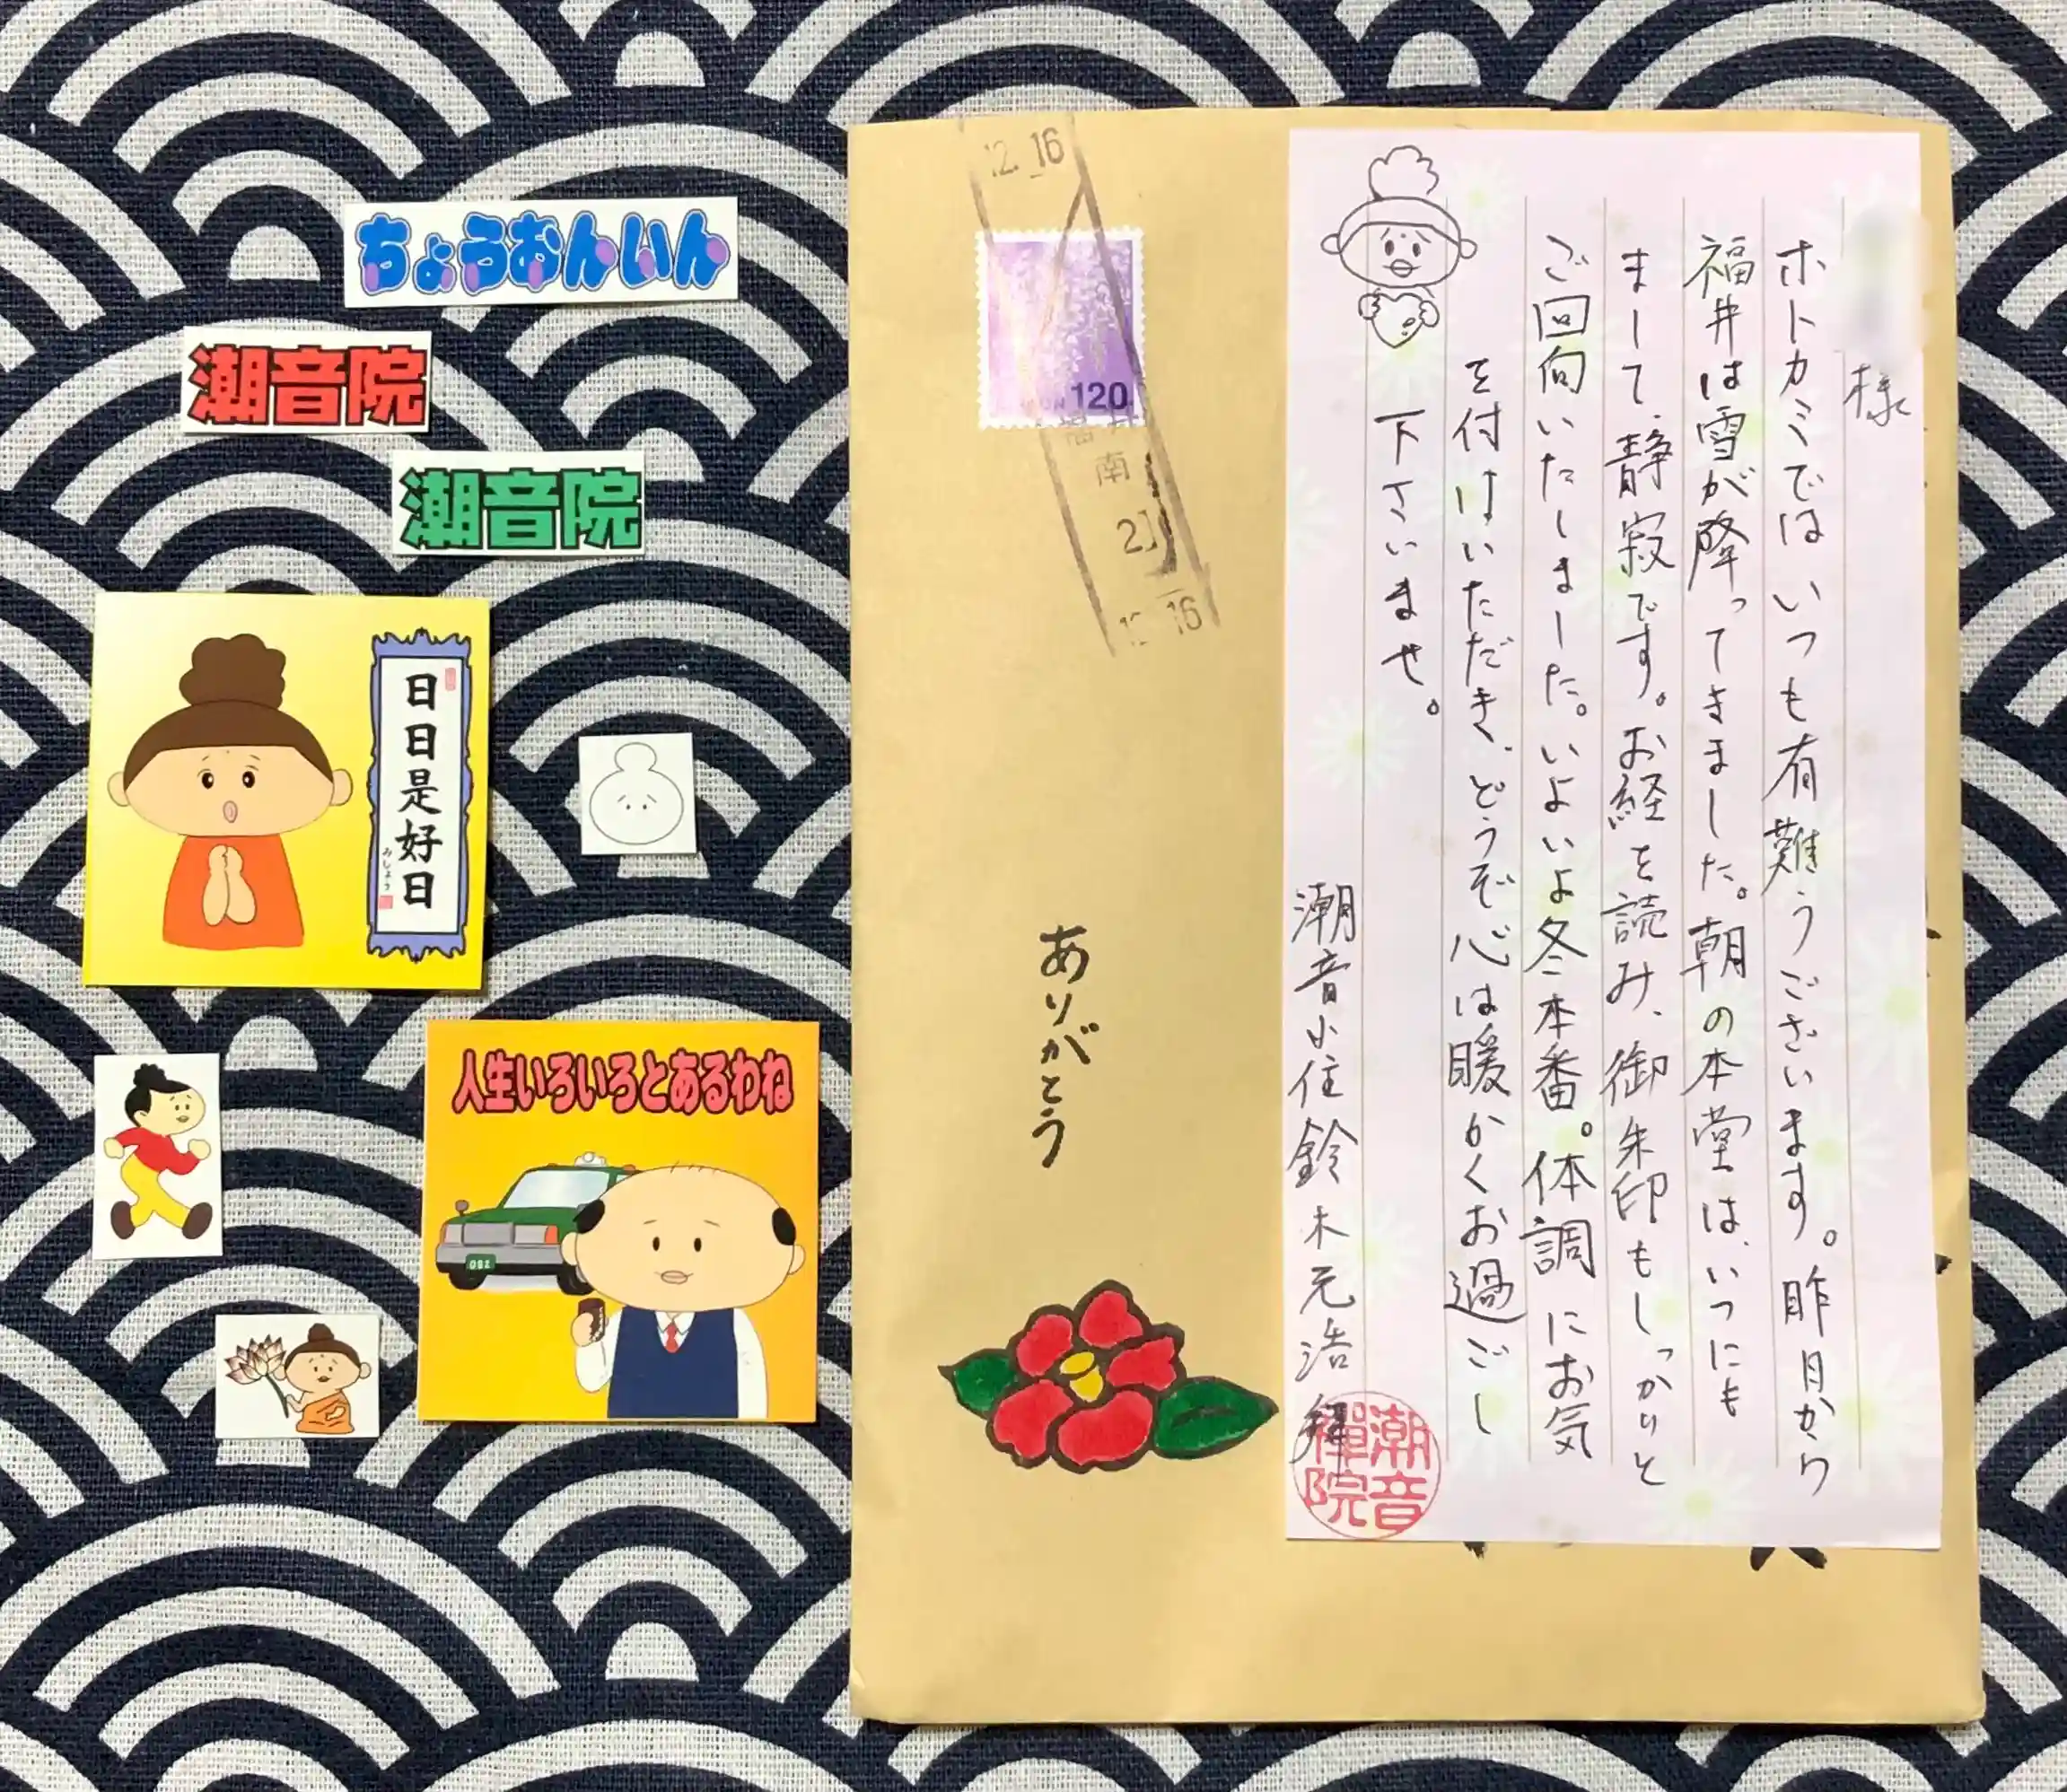 ちょうおんいん
潮音院
潮音院
日日是好日
みしょう
人生いろいろとあるわね
082
12.16
120
南
12 16
ありがとう
様
ホトカミではいつも有難うございます。昨日から
福井は雪が降ってきました。朝の本堂は、いつにも
まして、静寂です。お経を読み、御朱印もしっかりと
ご回向いたしました。いよいよ冬本番。体調にお気
を付けいただき、どうぞ心は暖かくお過ごし
下さいませ。
潮音小住鈴木元浩
潮音禅院